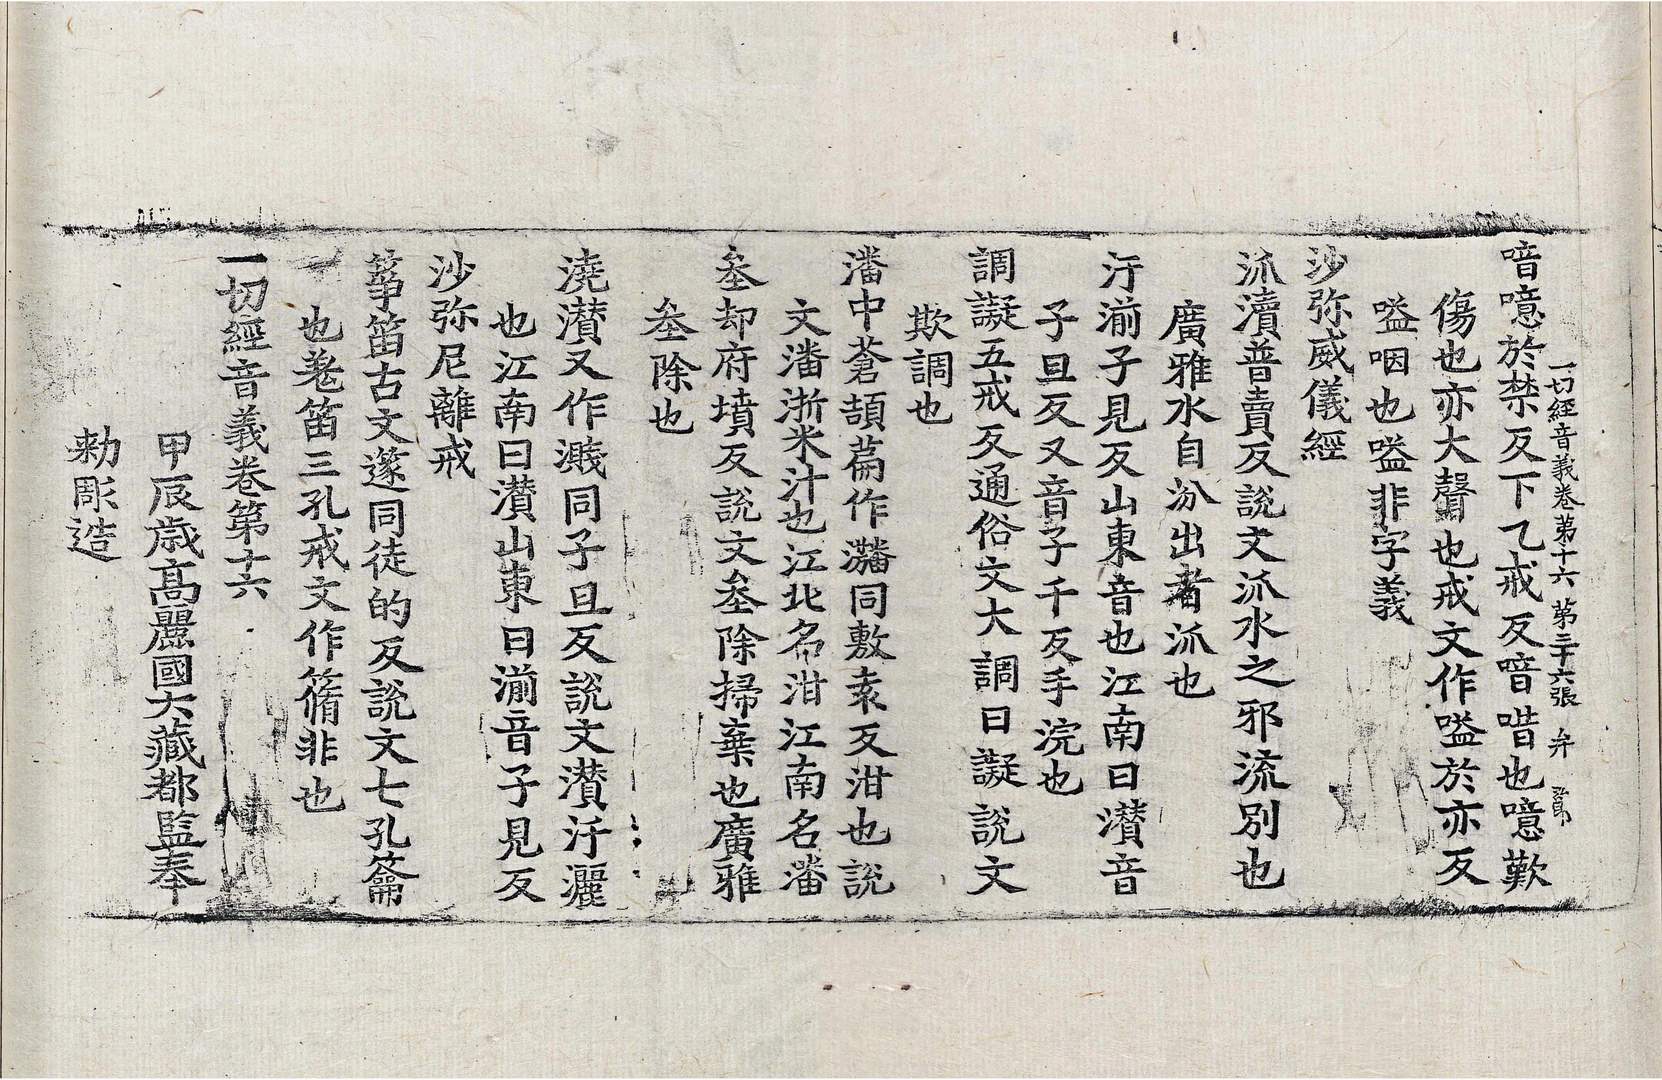 一切経音義卷第十六 第三十六張 弁
喑噫於禁反下乙戒反喑唶也噫歎
傷也亦大聲也戒文作嗌於亦反
嗌咽也嗌非字義
沙弥威儀經
派瀆普賣反說文派水之邪流別也
廣雅水自汾出者派也
汙湔子見反山東音也江南曰灒音
子旦反又音子千反手浣也
調譺五戒反通俗文大調曰譺說文
欺調也
潘中蒼頡篇作䉒同敷袁反泔也說
文潘浙米汁也江北名泔江南名潘
坌却府墳反說文坌除掃棄也廣雅
坌除也
澆灒又作濺同子旦反說文灒汙灑
也江南曰灒山東曰湔音子見反
沙弥尼離戒
箏笛古文篴同徒的反說文七孔籥
也羗笛三孔戒文作篟非也
一切經音義卷第十六
甲辰歲高麗國大藏都監奉
勑彫造